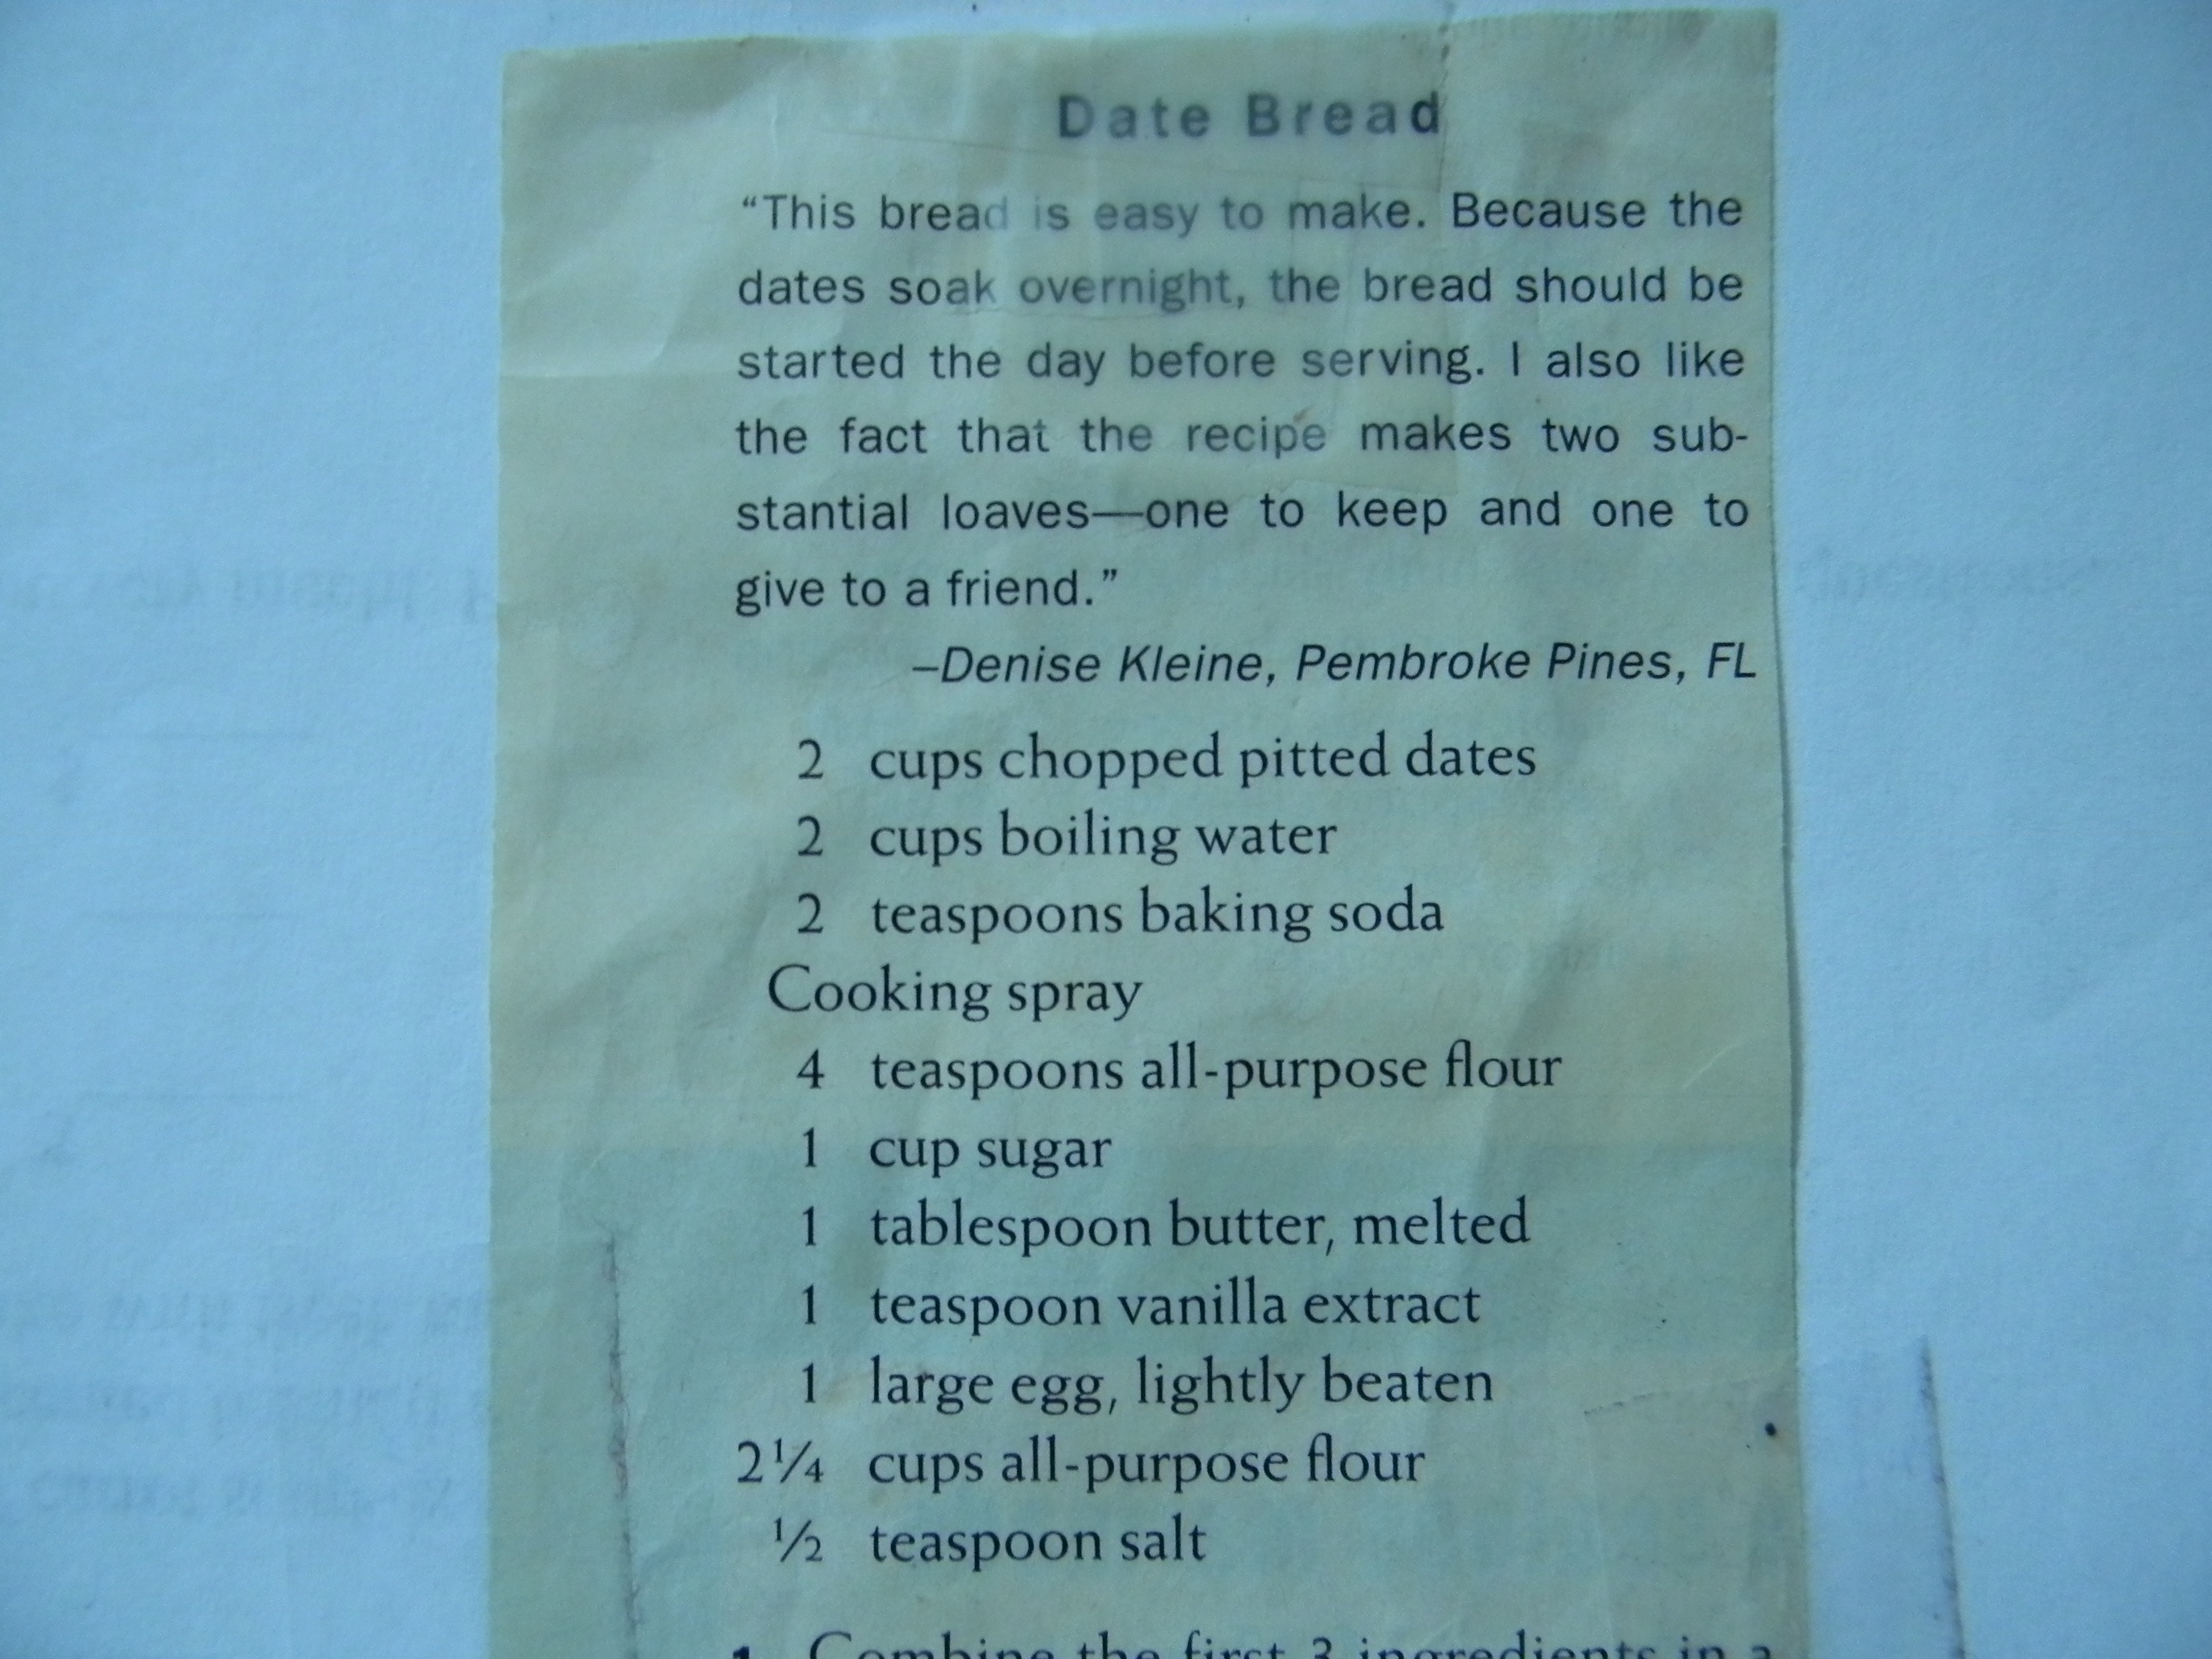 Date Bread
“This bread is easy to make. Because the
dates soak overnight, the bread should be
started the day before serving. I also like
the fact that the recipe makes two sub-
stantial loaves—one to keep and one to
give to a friend.”
–Denise Kleine, Pembroke Pines, FL
2 cups chopped pitted dates
2 cups boiling water
2 teaspoons baking soda
Cooking spray
4 teaspoons all-purpose flour
1 cup sugar
1 tablespoon butter, melted
1 teaspoon vanilla extract
1 large egg, lightly beaten
2¼ cups all-purpose flour
½ teaspoon salt
1. Combine the first 3 ingredients in a